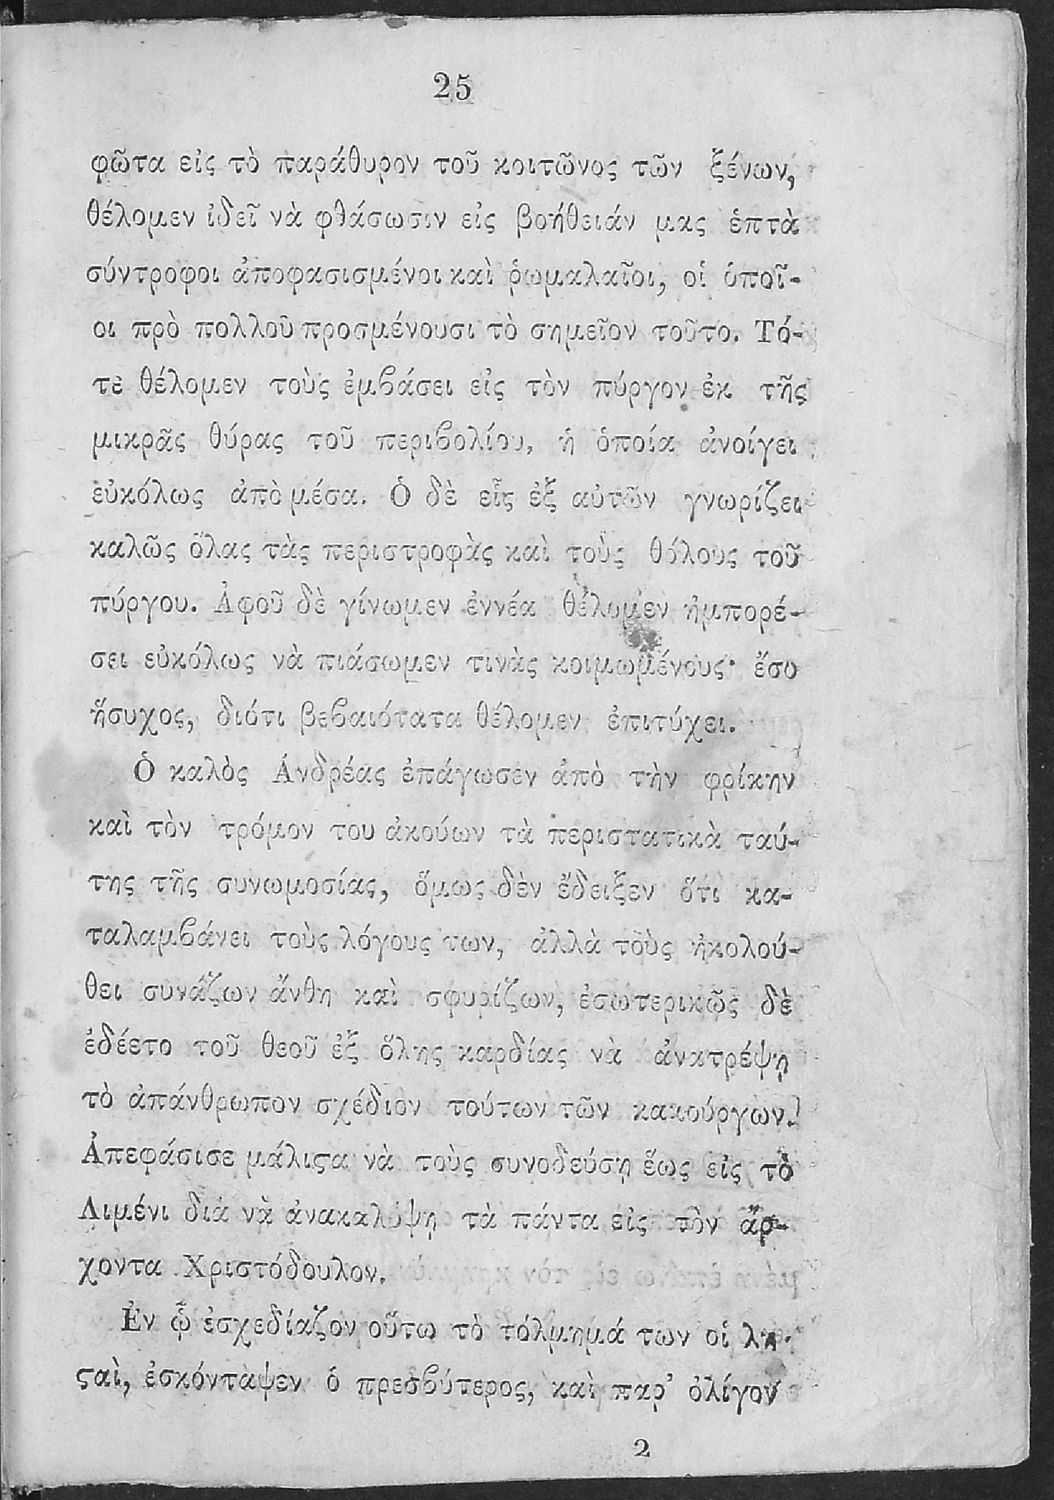 25
φῶτα εἰς τὸ παράθυρον τοῦ κοιτῶνος τῶν ξένων,
θέλομεν ἰδεῖ νὰ φθάσωσιν εἰς βοήθειάν μας ἑπτὰ
σύντροφοι ἀποφασισμένοι καὶ ῥωμαλαῖοι, οἱ ὁποῖ-
οι πρὸ πολλοῦ προσμένουσι τὸ σημεῖον τοῦτο. Τό-
τε θέλομεν τοὺς ἐμϐάσει εἰς τὸν πύργον ἐκ τῆς
μικρᾶς θύρας τοῦ περιϐολίου, ἡ ὁποία ἀνοίγει
εὐκόλως ἀπὸ μέσα. Ὁ δὲ εἷς ἐξ αὐτῶν γνωρίζει
καλῶς ὅλας τὰς περιστροφὰς καὶ τοὺς θόλους τοῦ
πύργου. Ἀφοῦ δὲ γίνωμεν ἐννέα θέλομεν ἠμπορέ-
σει εὐκόλως νὰ πιάσωμεν τινὰς κοιμωμένους· ἔσο
ἥσυχος, διότι βεϐαιότατα θέλομεν ἐπιτύχει.
Ὁ καλὸς Ἀνδρέας ἐπάγωσεν ἀπὸ τὴν φρίκην
καὶ τὸν τρόμον του ἀκούων τὰ περιστατικὰ ταύ-
της τῆς συνωμοσίας, ὅμως δὲν ἔδειξεν ὅτι κα-
ταλαμϐάνει τοὺς λόγους των, ἀλλὰ τοὺς ἠκολού-
θει συνάζων ἄνθη καὶ σφυρίζων, ἐσωτερικῶς δὲ
ἐδέετο τοῦ θεοῦ ἐξ ὅλης καρδίας νὰ ἀνατρέψῃ
τὸ ἀπάνθρωπον σχέδιον τούτων τῶν κακούργων.
Ἀπεφάσισε μάλιϛα νὰ τοὺς συνοδεύσῃ ἕως εἰς τὸ
Λιμένι διὰ νὰ ἀνακαλύψῃ τὰ πάντα εἰς τὸν ἄρ-
χοντα Χριστόδουλον.
Ἐν ᾧ ἐσχεδίαζον οὕτω τὸ τόλμημά των οἱ λη-
ϛαὶ, ἐσκόνταψεν ὁ πρεσϐύτερος, καὶ παρ’ ὀλίγον
2